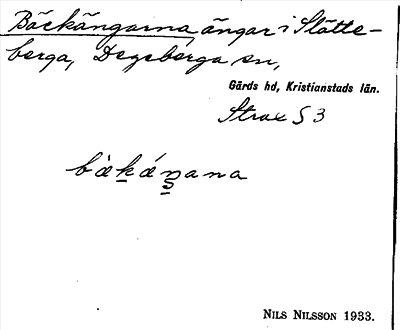 Bäckängarna, ängar i Slätte-
berga, Degeberga sn,
Gärds hd, Kristianstads län.
Strax S 3
bækæŋana
NILS NILSSON 1933.